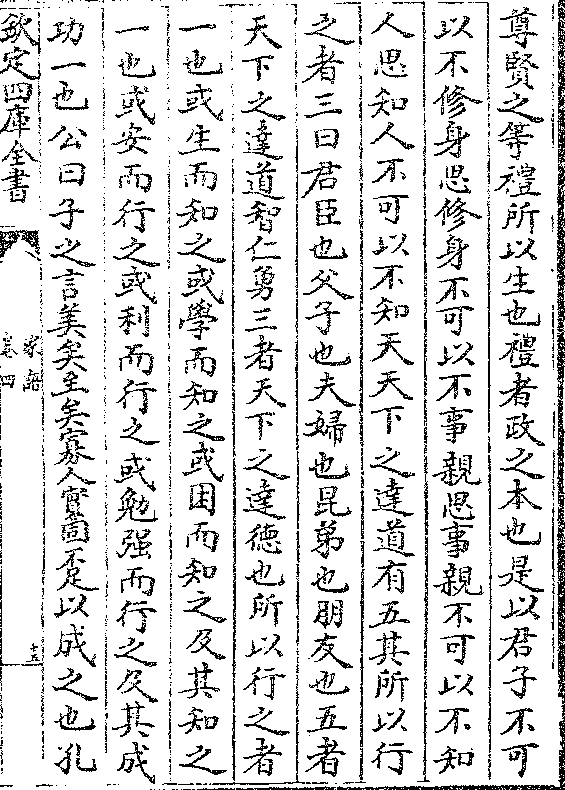 尊賢之等禮所以生也禮者政之本也是以君子不可
以不修身思修身不可以不事親思事親不可以不知
人思知人不可以不知天天下之達道有五其所以行
之者三曰君臣也父子也夫婦也昆弟也朋友也五者
天下之達道智仁勇三者天下之達德也所以行之者
一也或生而知之或學而知之或困而知之及其知之
一也或安而行之或利而行之或勉强而行之及其成
功一也公曰子之言美矣至矣寡人實固不足以成之也孔
欽定四庫全書
家語
卷四
十五